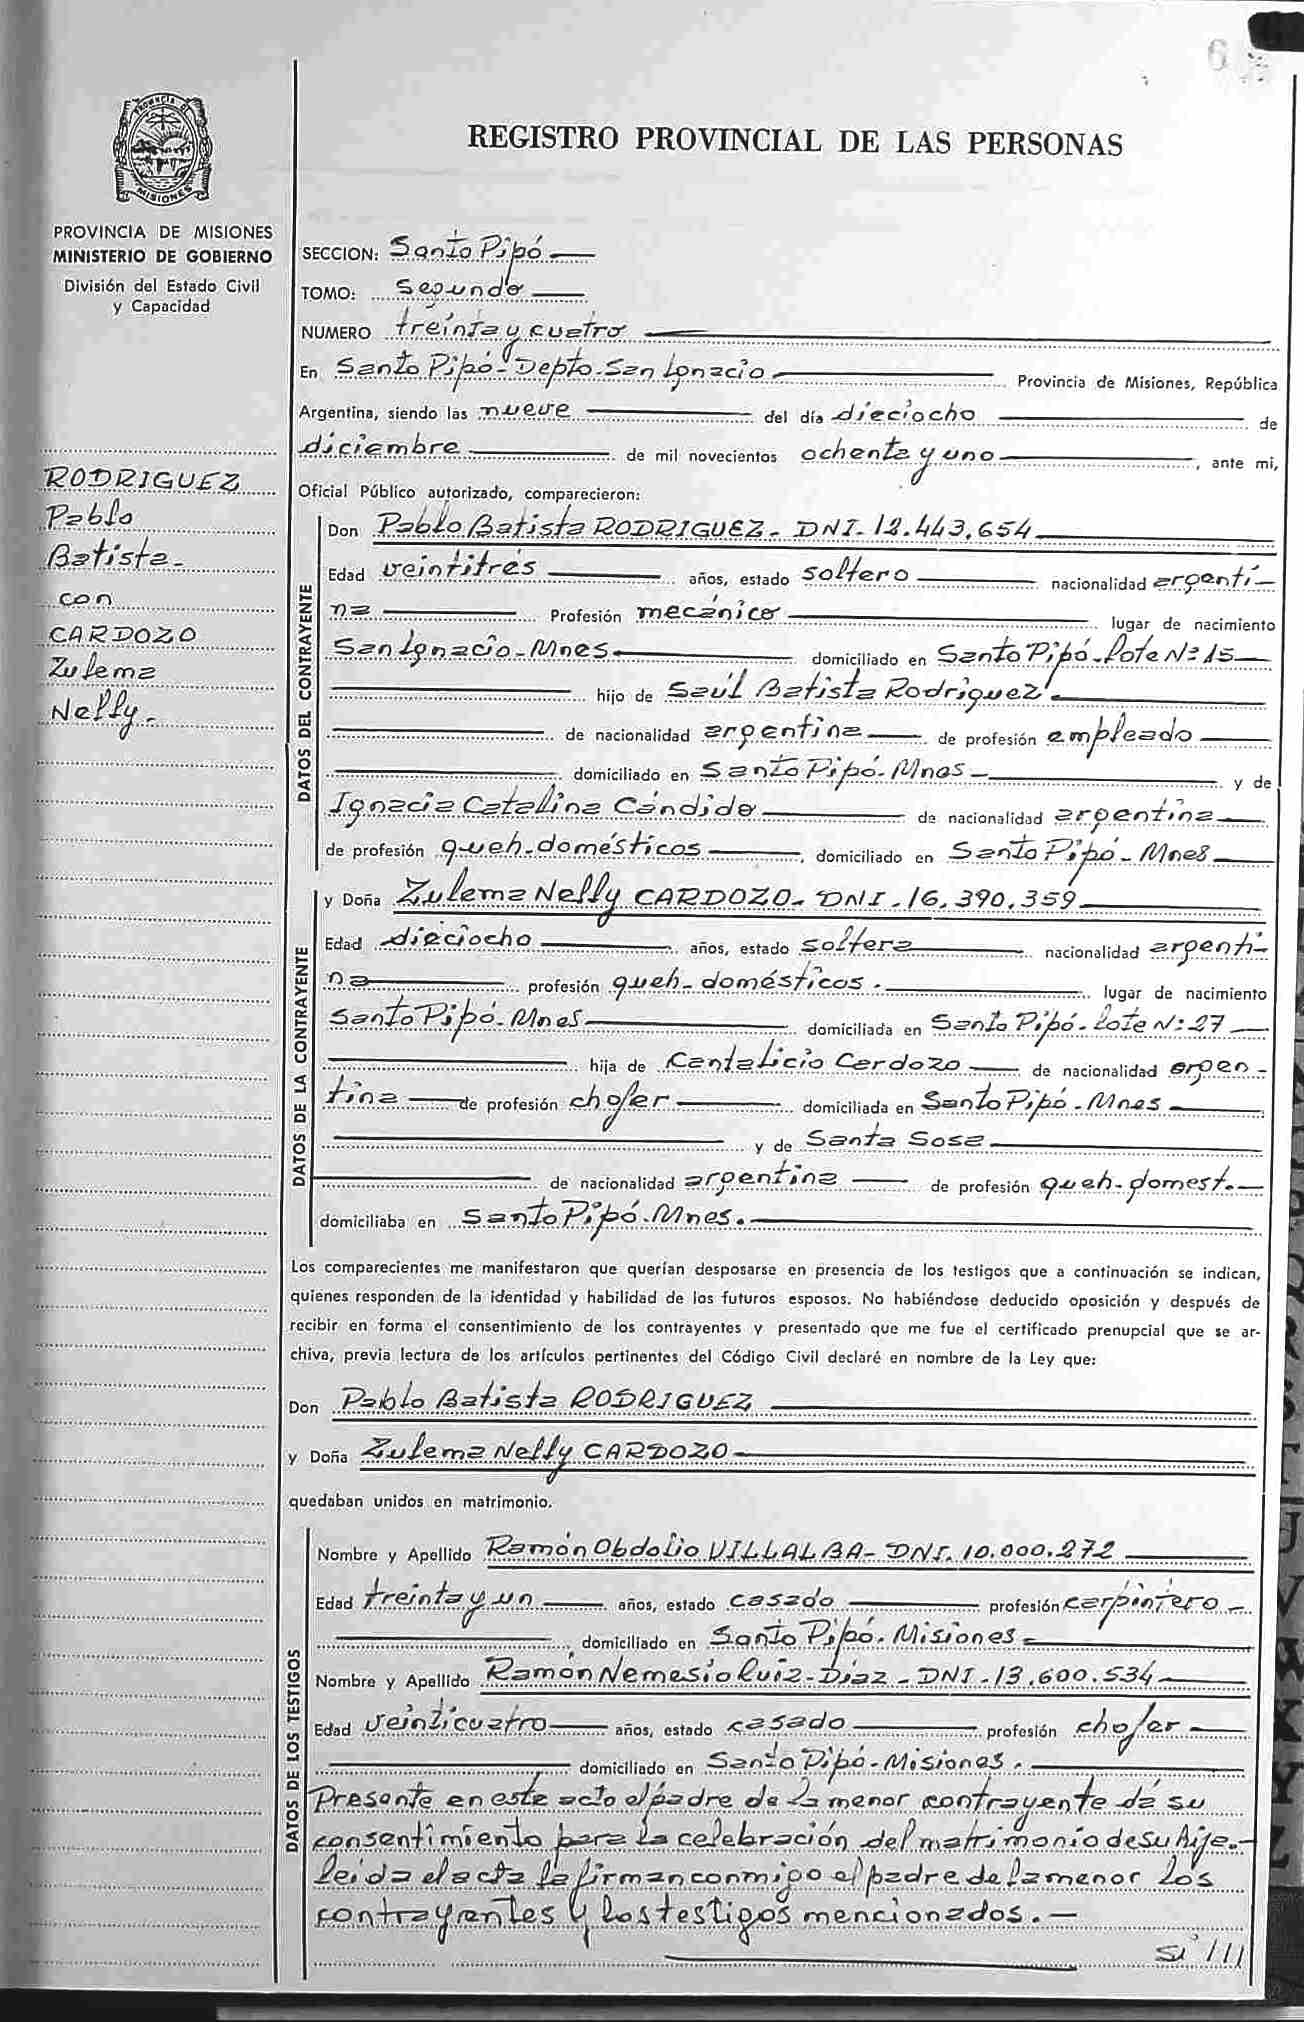 REGISTRO PROVINCIAL DE LAS PERSONAS
PROVINCIA DE
MISIONES
PROVINCIA DE MISIONES
MINISTERIO DE GOBIERNO
División del Estado Civil
y Capacidad
RODRIGUEZ
Pablo
Batista-
con
CARDOZO
Zulema
Nelly.-
SECCION: Santo Pipó
TOMO: Segundo
NUMERO treinta y cuatro
En Santo Pipó-Depto.San Ignacio Provincia de Misiones, República
Argentina, siendo las nueve del día dieciocho de
diciembre de mil novecientos ochenta y uno, ante mi,
Oficial Público autorizado, comparecieron:
DATOS DEL CONTRAYENTE
Don Pablo Batista RODRIGUEZ.- DNI. 12.443.654
Edad veintitrés años, estado soltero nacionalidad argenti-
na Profesión mecánico lugar de nacimiento
San Ignacio-Mnes. domiciliado en Santo Pipó-lote Nº 15
hijo de Saúl Batista Rodriguez
de nacionalidad argentina de profesión empleado
domiciliado en Santo Pipó-Mnes y de
Ignacia Catalina Cándido de nacionalidad argentina
de profesión queh.domésticos, domiciliado en Santo Pipó-Mnes
DATOS DE LA CONTRAYENTE
y Doña Zulema Nelly CARDOZO- DNI.16.390.359
Edad dieciocho años, estado soltera nacionalidad argenti-
na profesión queh-domésticos. lugar de nacimiento
Santo Pipó-Mnes domiciliada en Santo Pipó-lote Nº 27
hija de Cantalicio Cardozo de nacionalidad argen-
tina de profesión chofer domiciliada en Santo Pipó-Mnes
y de Santa Sosa
de nacionalidad argentina de profesión queh-domest.
domiciliaba en Santo Pipó.Mnes.
Los comparecientes me manifestaron que querían desposarse en presencia de los testigos que a continuación se indican,
quienes responden de la identidad y habilidad de los futuros esposos. No habiéndose deducido oposición y después de
recibir en forma el consentimiento de los contrayentes y presentado que me fue el certificado prenupcial que se ar-
chiva, previa lectura de los artículos pertinentes del Código Civil declaré en nombre de la Ley que:
Don Pablo Batista RODRIGUEZ
y Doña Zulema Nelly CARDOZO
quedaban unidos en matrimonio.
DATOS DE LOS TESTIGOS
Nombre y Apellido Ramón Obdolio VILLALBA- DNI.10.000.272
Edad treinta y un años, estado casado profesión carpintero-
domiciliado en Santo Pipó. Misiones
Nombre y Apellido Ramón Nemesio Ruiz-Diaz - DNI.13.600.534
Edad veinticuatro años, estado casado profesión chofer
domiciliado en Santo Pipó-Misiones.
Presente en este acto el padre de la menor contrayente dá su
consentimiento para la celebración del matrimonio de su hija.-
leida el acta la firman conmigo el padre de la menor los
contrayentes y los testigos mencionados.-